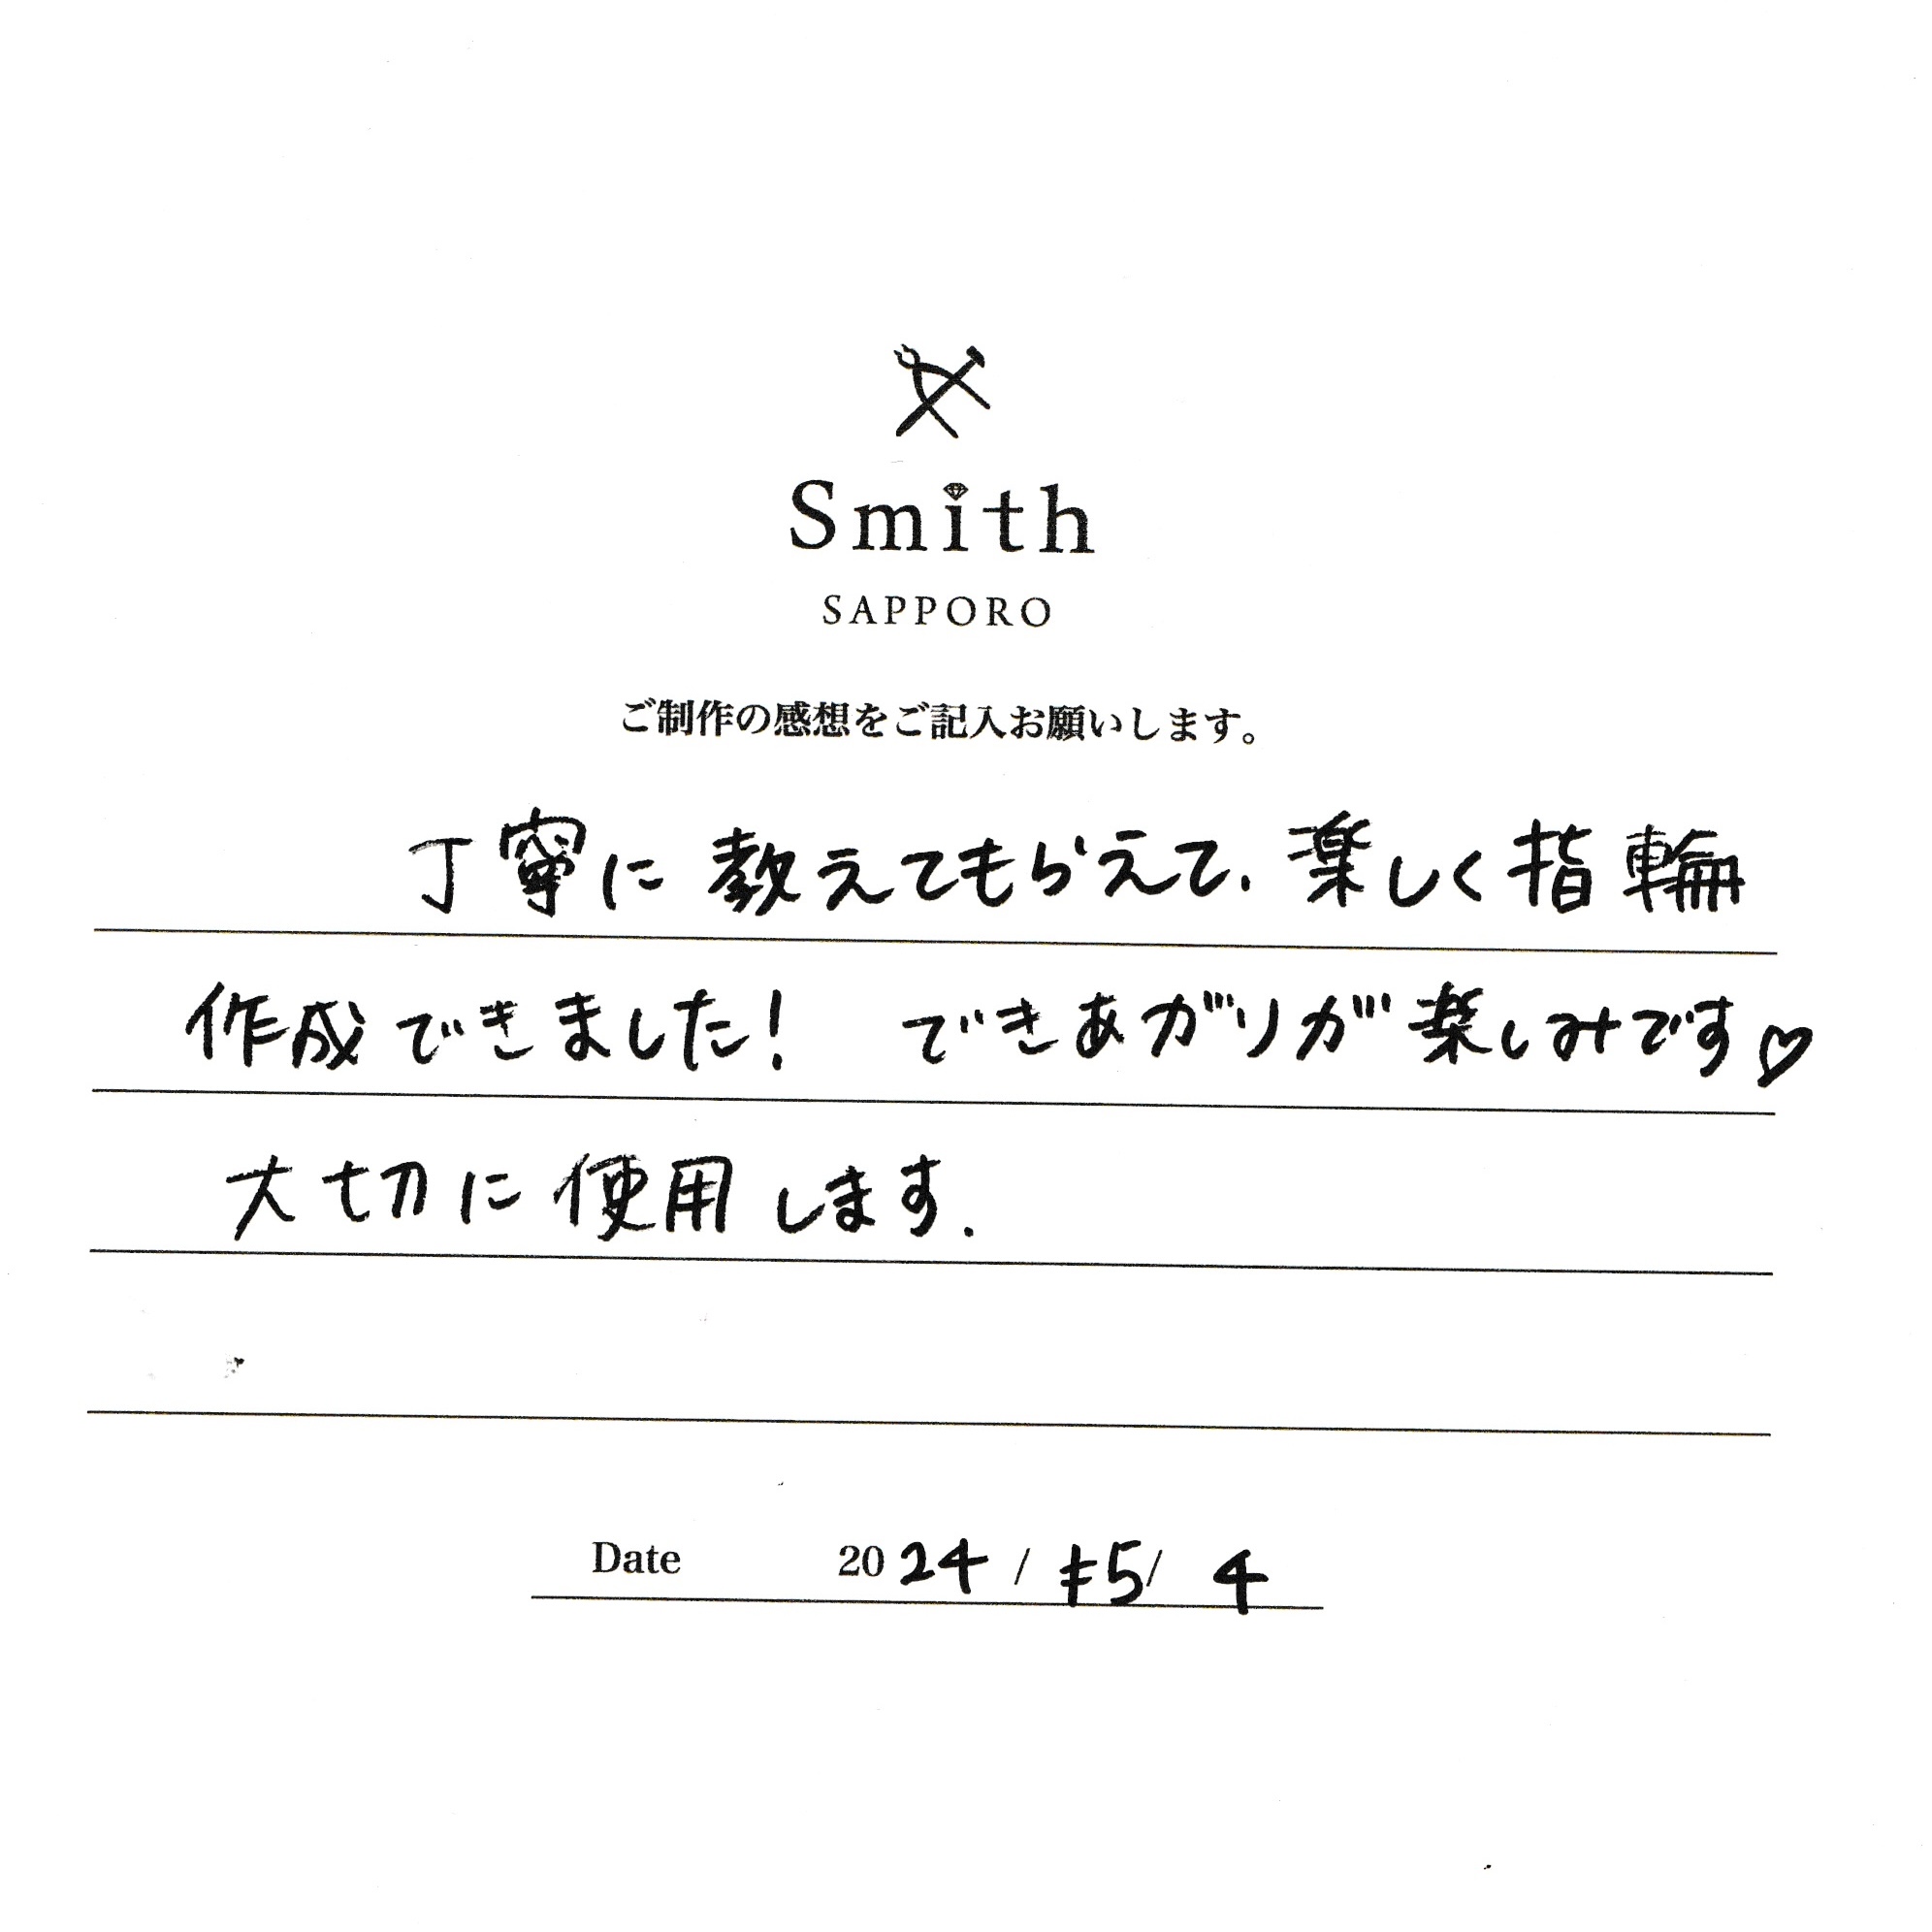 Smith
SAPPORO
ご制作の感想をご記入お願いします。
丁寧に教えてもらえて、楽しく指輪
作成できました! できあがりが楽しみです♡
大切に使用します.
Date 2024 / 5 / 4